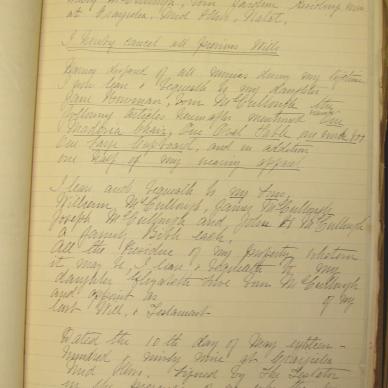 Mary McCullough, born Gardiner residing now
at Craigielea, Mid Illovo, Natal.
I hereby cancel all previous Wills
Having disposed of all monies during my lifetime
I now leave & bequeath to my daughter
Jane Bowman, born McCullough the
following articles hereinafter mentioned namely One
Madeira Chair, One Oval Table
One large Cupboard, and in addition
one half of my wearing apparel
I leave and bequeath to my sons,
William McCullough, James McCullough
Joseph McCullough and, John McCullough
a family Bible each.
All the Residue of my property whatsom
it may be, I leave & bequeath to my
daughter Elizabeth born McCullough
and appoint as of my
last Will, & Testament
Dated the 10th day of May eighteen-
hundred & ninety nine at Craigielea
Mid Illovo. Signed by the Testator
in the presence of